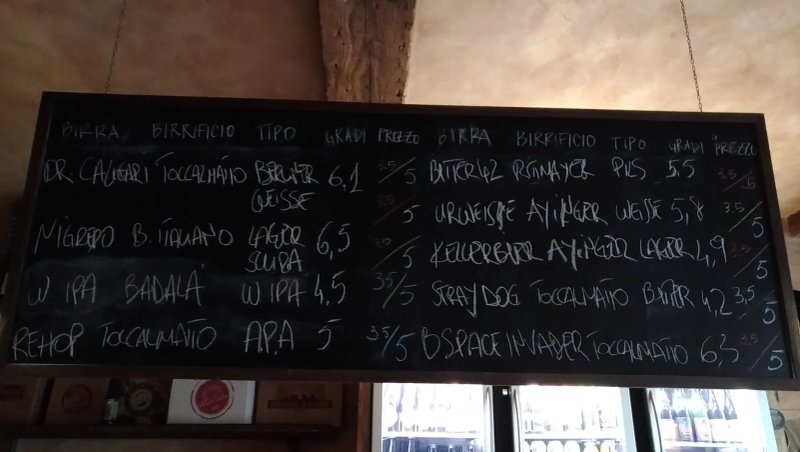 BIRRA BIRRIFICIO TIPO GRADI PREZZO
DR. CALIGARI TOCCALMATO BERLINER WEISSE 6,1 3,5/5
MIGRADO B. ITALIANO LAGER SCURA 6,5 3,5/5
W. IPA BADALÀ W. IPA 4,5 3,5/5
REHOP TOCCALMATO A.P.A 5 3,5/5
BIRRA BIRRIFICIO TIPO GRADI PREZZO
BITTER 42 PILS 5,5 3,5/5
URWEISSE AYINGER WEISSE 5,8 3,5/5
KELLERBIER AYINGER LAGER 4,9 3,5/5
STRAY DOG TOCCALMATO BITTER 4,2 3,5/5
B SPACE INVADER TOCCALMATO 6,3 3,5/5